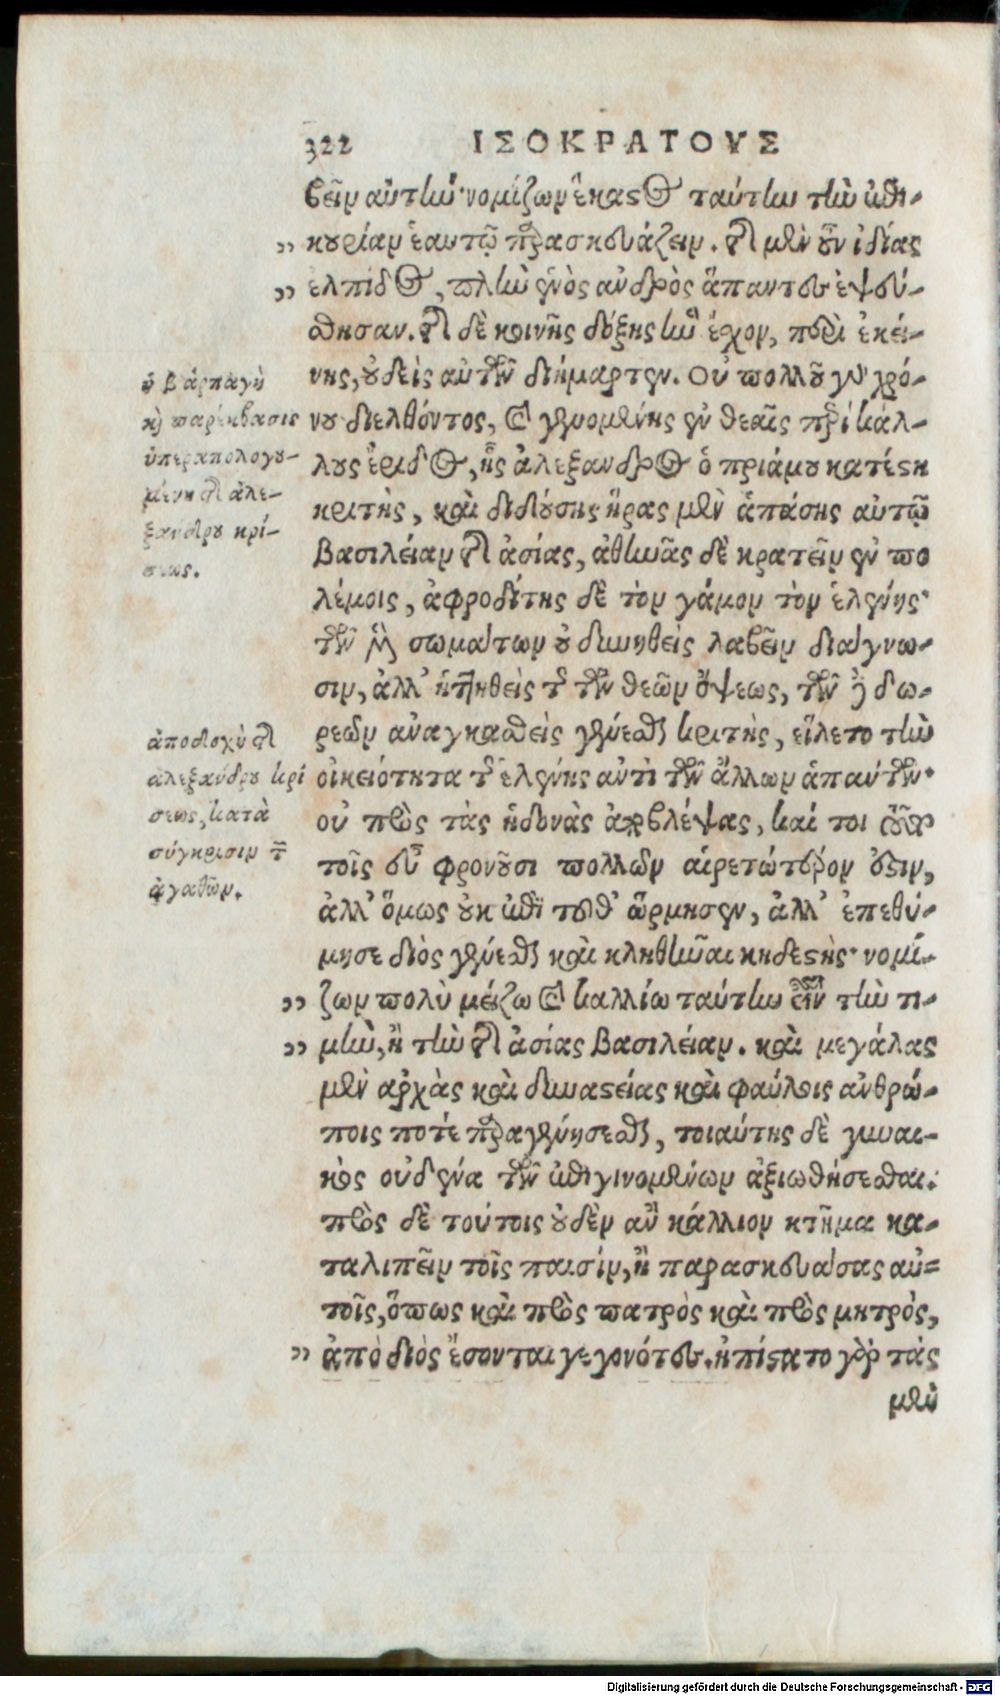 322 ΙΣΟΚΡΑΤΟΥΣ
βεῖν αὐτήν· νομίζων ἕκαστος ταύτην τὴν ἐπι-
κουρίαν ἑαυτῷ παρασκευάζειν. τῆς μὲν οὖν ἰδίας
ἐλπίδος, πλὴν ἑνὸς ἀνδρὸς ἅπαντες ἐψεύ-
σθησαν. τῆς δὲ κοινῆς δόξης ἣν ἔχον, περὶ ἐκεί-
νης, οὐδεὶς αὐτῶν διήμαρτεν. Οὐ πολλοῦ γὰρ χρό-
νου διελθόντος, καὶ γενομένης ἐν θεαῖς περὶ κάλ-
λους ἔριδος, ἧς ἀλέξανδρος ὁ πριάμου κατέστη
κριτὴς, καὶ διδούσης ἥρας μὲν ἁπάσης αὐτῷ
βασιλείαν τῆς ἀσίας, ἀθηνᾶς δὲ κρατεῖν ἐν πο
λέμοις, ἀφροδίτης δὲ τὸν γάμον τὸν ἑλένης·
τῶν μὲν σωμάτων οὐ δυνηθεὶς λαβεῖν διάγνω-
σιν, ἀλλ' ἡττηθεὶς τῆς τῶν θεῶν ὄψεως, τῶν δὲ δω-
ρεῶν ἀναγκασθεὶς γενέσθαι κριτὴς, εἵλετο τὴν
οἰκειότητα τῆς ἑλένης ἀντὶ τῶν ἄλλων ἁπάντων·
οὐ πρὸς τὰς ἡδονὰς ἀποβλέψας, καί τοι καὶ τοῦτο
τοῖς εὖ φρονοῦσι πολλῶν αἱρετώτερόν ἐστιν,
ἀλλ' ὅμως οὐκ ἐπὶ τοῦθ' ὥρμησεν, ἀλλ' ἐπεθύ-
μησε διὸς γενέσθαι καὶ κληθῆναι κηδεστὴς· νομί-
ζων πολὺ μείζω καὶ καλλίω ταύτην εἶναι τὴν τι-
μὴν, ἢ τὴν τῆς ἀσίας βασιλείαν. καὶ μεγάλας
μὲν ἀρχὰς καὶ δυναστείας καὶ φαύλοις ἀνθρώ-
ποις ποτὲ παραγενήσεσθαι, τοιαύτης δὲ γυναι-
κὸς οὐδένα τῶν ἐπιγινομένων ἀξιωθήσεσθαι:
πρὸς δὲ τούτοις οὐδὲν ἂν κάλλιον κτῆμα κα-
ταλιπεῖν τοῖς παισὶν, ἢ παρασκευάσας αὐ-
τοῖς, ὅπως καὶ πρὸς πατρὸς καὶ πρὸς μητρὸς,
ἀπὸ διὸς ἔσονται γεγονότες. ἠπίστατο γὰρ τὰς
μὲν
ἡ β ἁρπαγὴ
καὶ παρέκβασις
ὑπεραπολογου-
μένη τῆς ἀλε-
ξάνδρου κρί-
σεως.
ἀποδοχὴ τῆς
ἀλεξάνδρου κρί
σεως, κατὰ
σύγκρισιν τῶν
ἀγαθῶν.
Digitalisierung gefördert durch die Deutsche Forschungsgemeinschaft - DFG